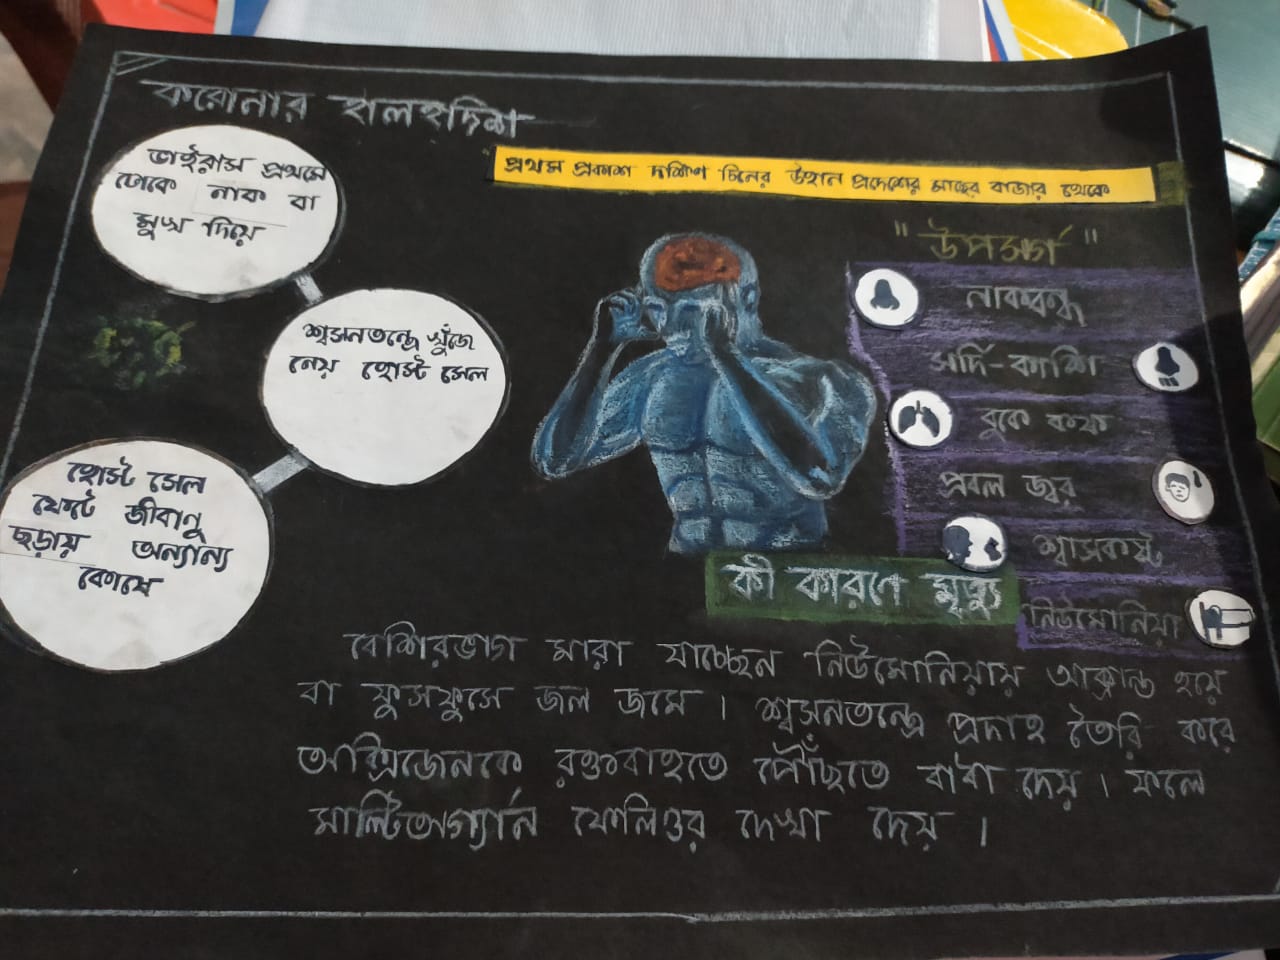 করোনার হালহদিশ
প্রথম প্রকাশ দক্ষিণ চিনের উহান প্রদেশের মাছের বাজার থেকে
ভাইরাস প্রথমে
ঢোকে নাক বা
মুখ দিয়ে
শ্বসনতন্ত্রে খুঁজে
নেয় হোস্ট সেল
হোস্ট সেল
ফেটে জীবানু
ছড়ায় অন্যান্য
কোষে
"উপসর্গ"
নাকবন্ধ
সর্দি-কাশি
বুকে কফ
প্রবল জ্বর
শ্বাসকষ্ট
নিউমোনিয়া
কী কারণে মৃত্যু
বেশিরভাগ মারা যাচ্ছেন নিউমোনিয়ায় আক্রান্ত হয়ে
বা ফুসফুসে জল জমে । শ্বসনতন্ত্রে প্রদাহ তৈরি করে
অক্সিজেনকে রক্তবাহতে পৌঁছতে বাধা দেয় । ফলে
মাল্টিঅর্গ্যান ফেলিওর দেখা দেয় ।